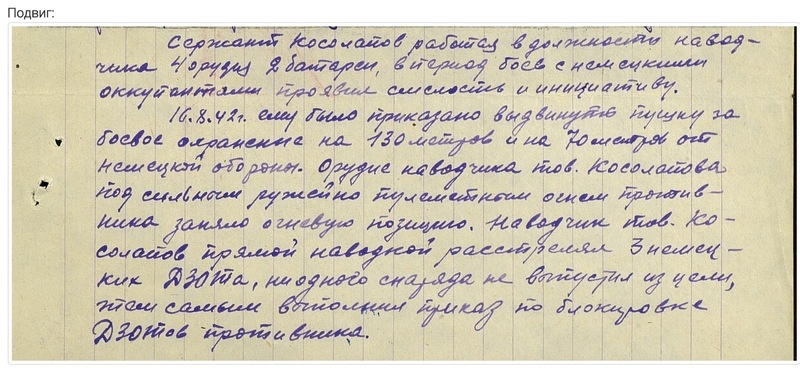 Подвиг:
Сержант Косолапов работая в должности навод-
чика 4 орудия 2 батареи, в период боев с немецкими
оккупантами проявил смелость и инициативу.
16.8.42г. ему было приказано выдвинуть пушку за
боевое охранение на 130 метров и на 70 метров от
немецкой обороны. Орудие наводчика тов. Косолапова
под сильным ружейно пулеметным огнем против-
ника заняло огневую позицию. Наводчик тов. Ко-
солапов прямой наводкой расстрелял 3 немец-
ких ДЗОТа, ниодного снаряда не выпустил из цели,
тем самым выполнил приказ по блокировке
ДЗОТов противника.